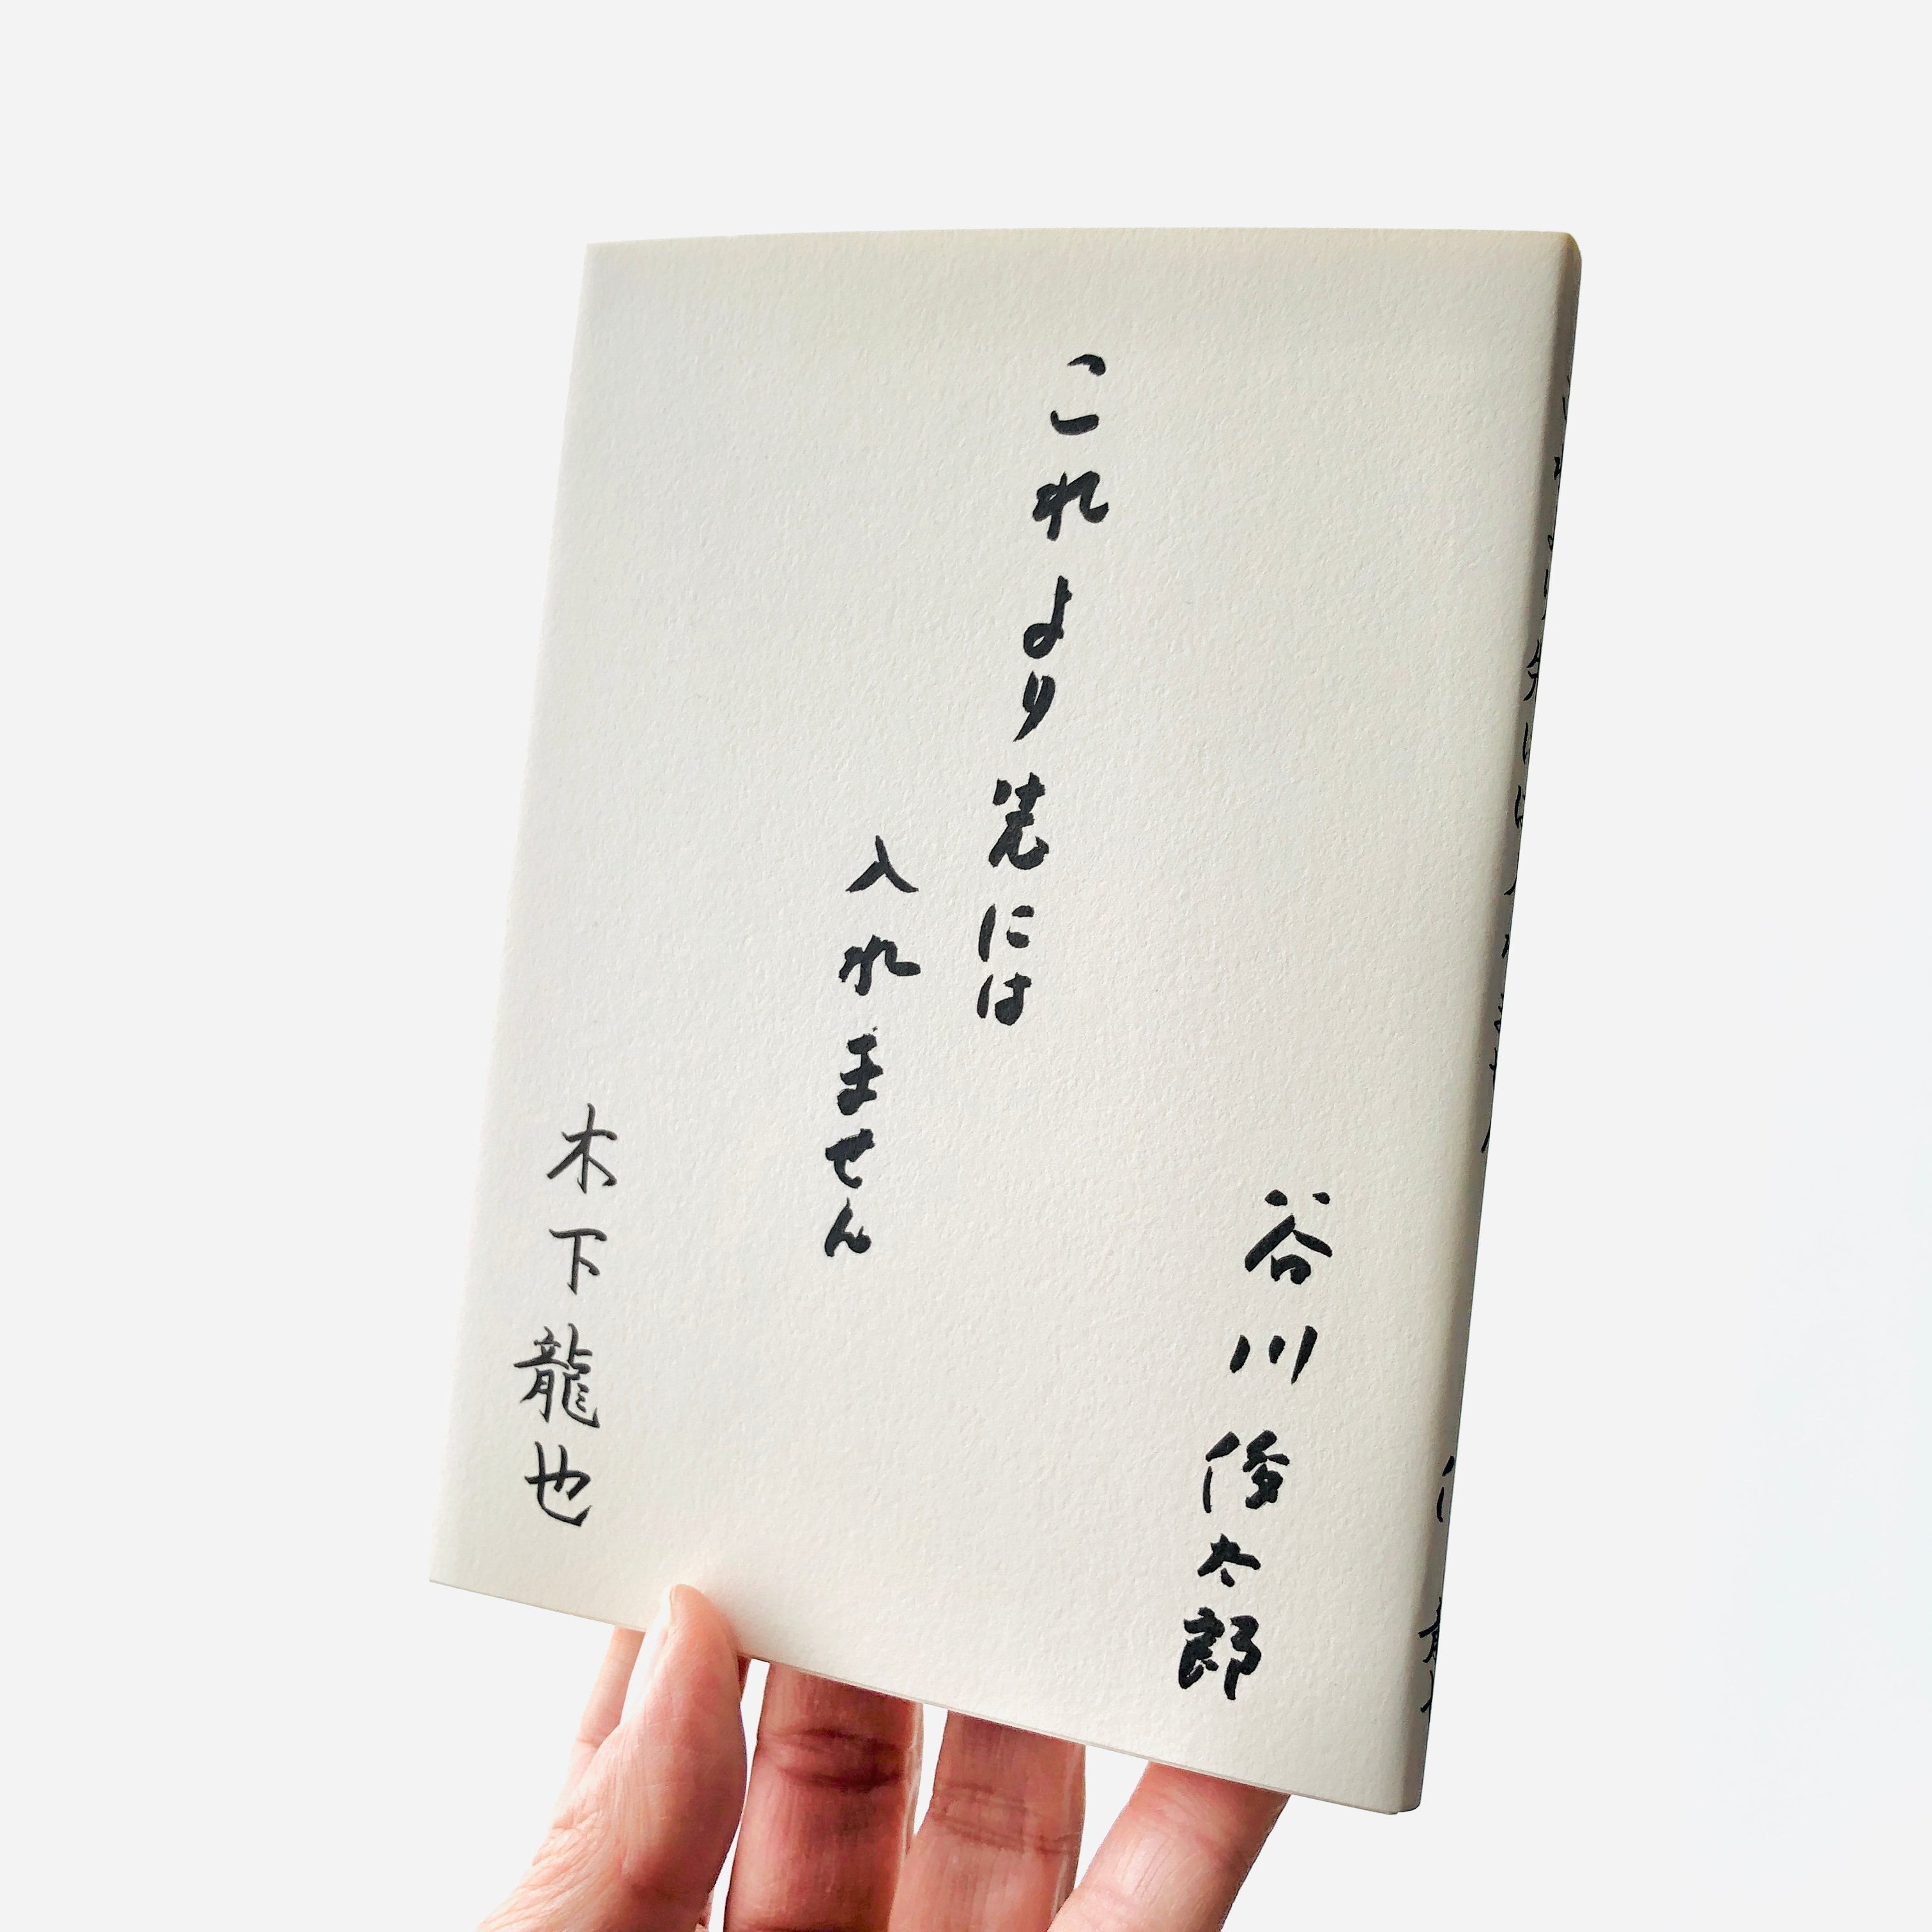 谷川俊太郎
これより先には
入れません
木下龍也